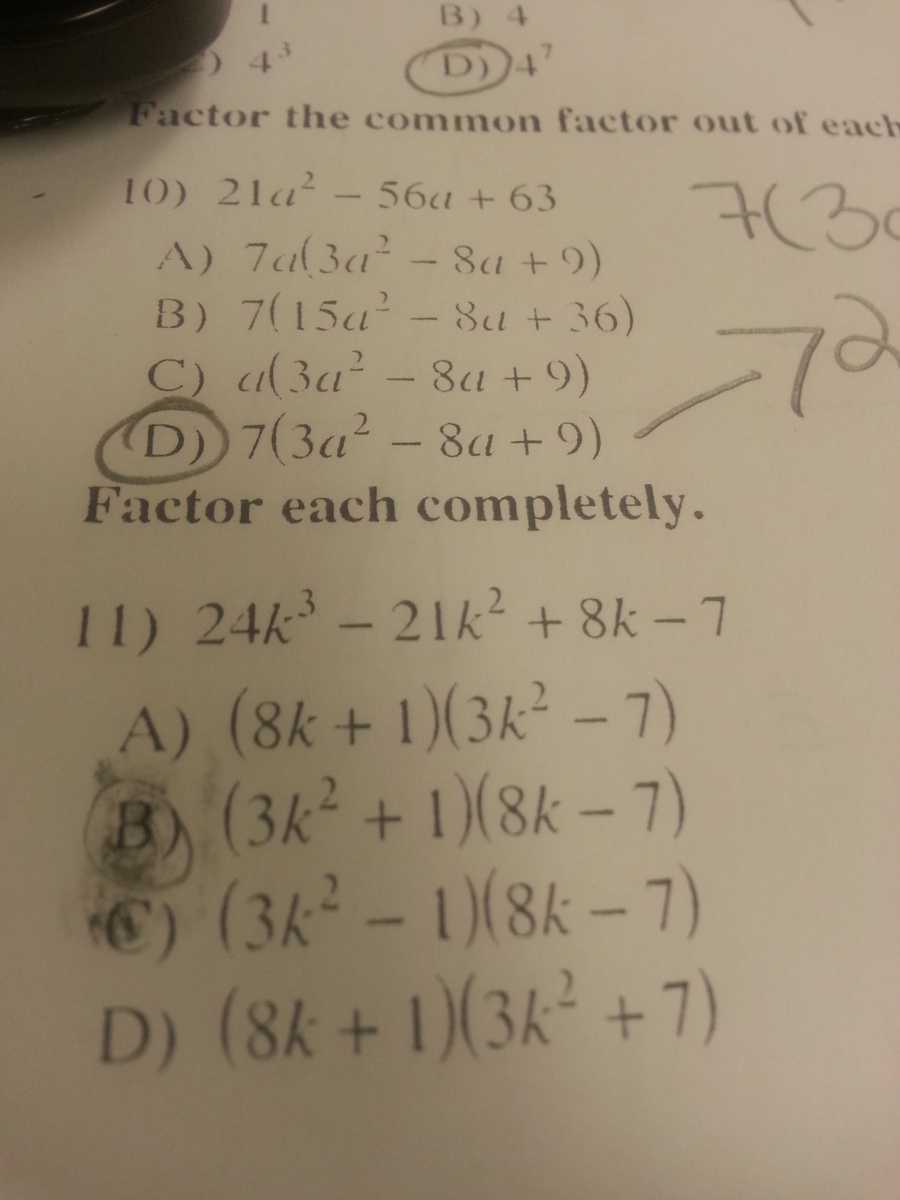 1 B) 4
) 4³ D) 4⁷
Factor the common factor out of each
10) 21a² – 56a + 63
7(3a
A) 7a(3a² – 8a + 9)
B) 7(15a² – 8a + 36)
72
C) a(3a² – 8a + 9)
D) 7(3a² – 8a + 9)
Factor each completely.
11) 24k³ – 21k² + 8k – 7
A) (8k + 1)(3k² – 7)
B) (3k² + 1)(8k – 7)
C) (3k² – 1)(8k – 7)
D) (8k + 1)(3k² + 7)